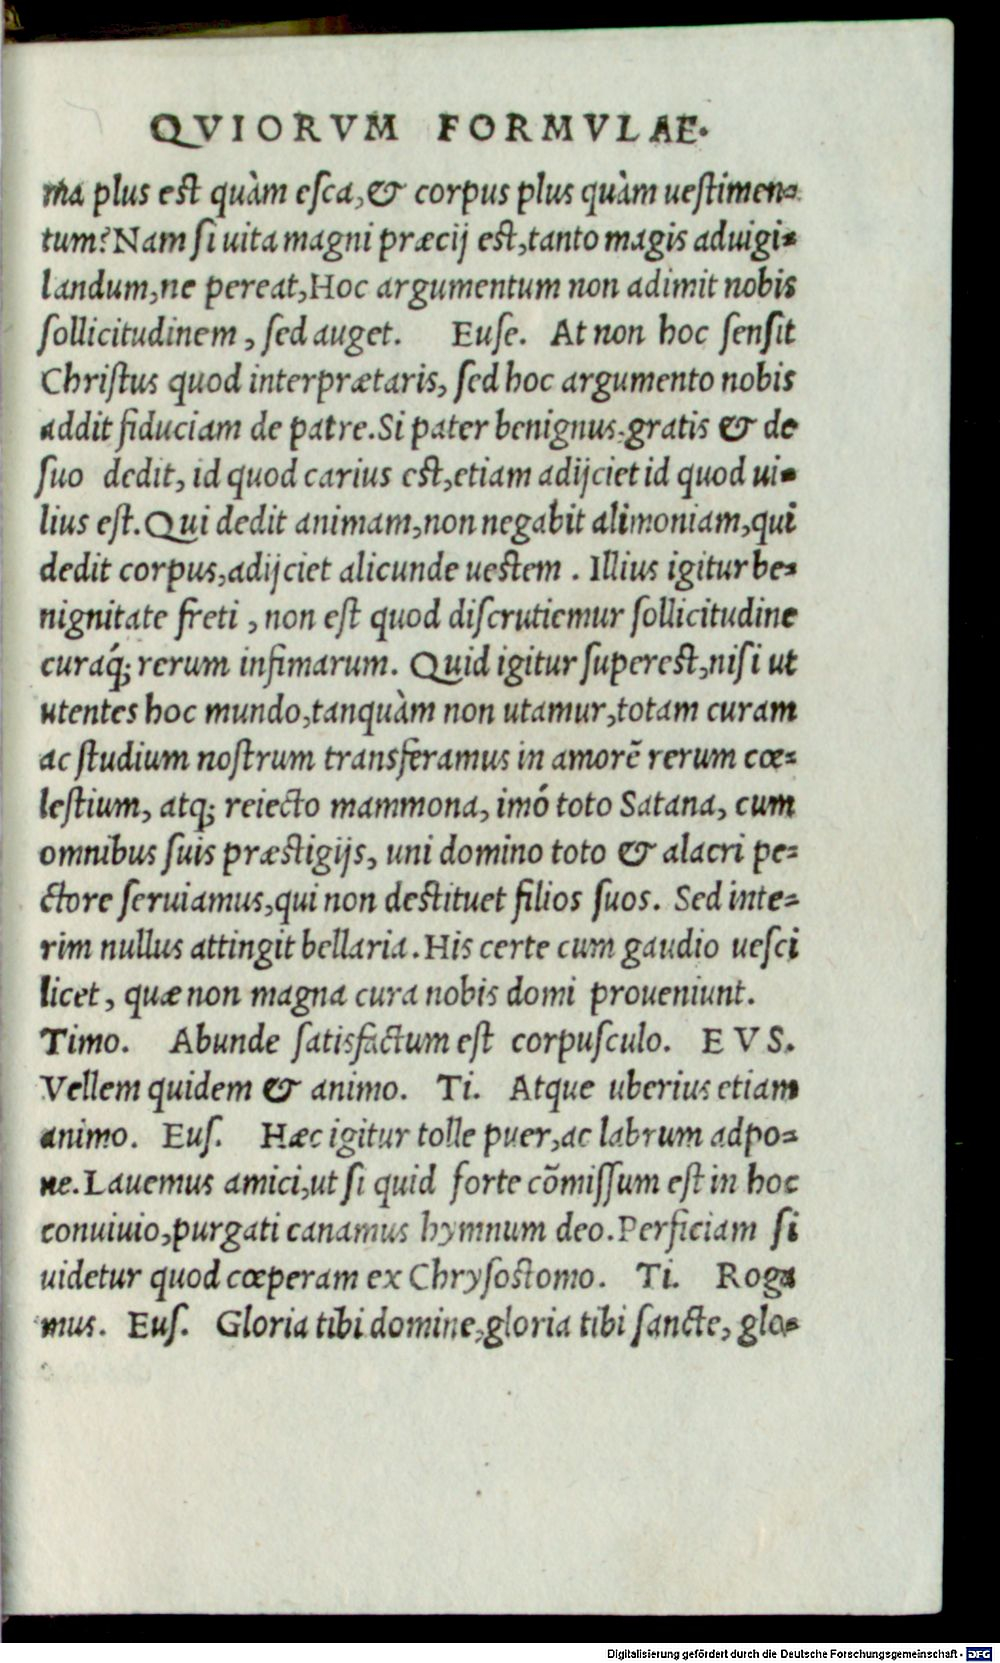 QVIORVM FORMVLAE.
ma plus est quàm esca, & corpus plus quàm uestimen-
tum? Nam si uita magni præcij est, tanto magis aduigi-
landum, ne pereat, Hoc argumentum non adimit nobis
sollicitudinem, sed auget. Euse. At non hoc sensit
Christus quod interprætaris, sed hoc argumento nobis
addit fiduciam de patre. Si pater benignus, gratis & de
suo dedit, id quod carius est, etiam adijciet id quod ui-
lius est. Qui dedit animam, non negabit alimoniam, qui
dedit corpus, adijciet alicunde uestem. Illius igitur be-
nignitate freti, non est quod discrutiemur sollicitudine
curaq́; rerum infimarum. Quid igitur superest, nisi ut
utentes hoc mundo, tanquàm non utamur, totam curam
ac studium nostrum transferamus in amorẽ rerum cœ-
lestium, atq; reiecto mammona, imó toto Satana, cum
omnibus suis præstigijs, uni domino toto & alacri pe-
ctore seruiamus, qui non destituet filios suos. Sed inte-
rim nullus attingit bellaria. His certe cum gaudio uesci
licet, quæ non magna cura nobis domi proueniunt.
Timo. Abunde satisfactum est corpusculo. EVS.
Vellem quidem & animo. Ti. Atque uberius etiam
animo. Eus. Hæc igitur tolle puer, ac labrum adpo-
ne. Lauemus amici, ut si quid forte cõmissum est in hoc
conuiuio, purgati canamus hymnum deo. Perficiam si
uidetur quod cœperam ex Chrysostomo. Ti. Roga
mus. Eus. Gloria tibi domine, gloria tibi sancte, glo-
Digitalisierung gefördert durch die Deutsche Forschungsgemeinschaft - DFG